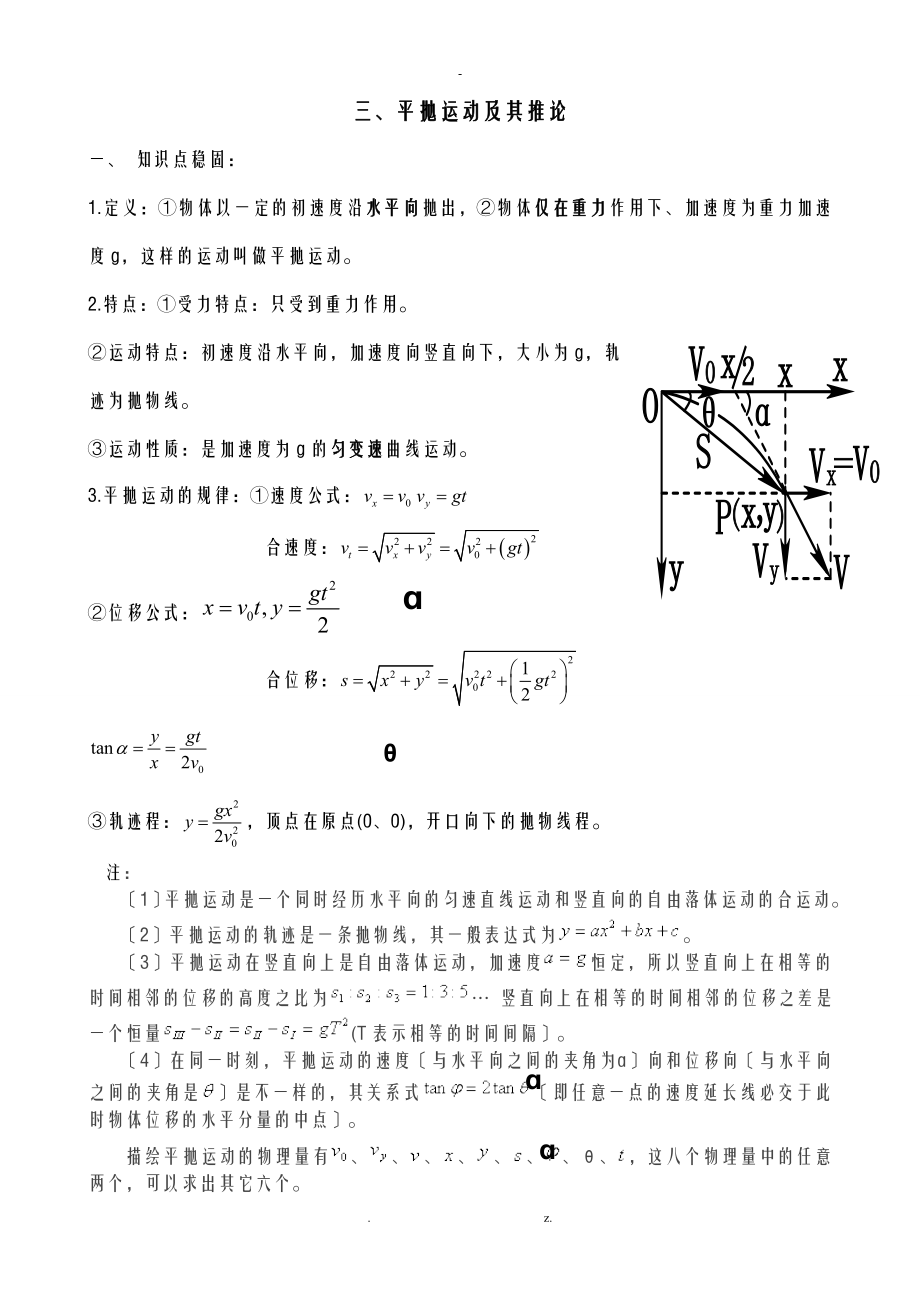 -
三、平抛运动及其推论
一、 知识点稳固：
1.定义：①物体以一定的初速度沿水平向抛出，②物体仅在重力作用下、加速度为重力加速
度 g，这样的运动叫做平抛运动。
2.特点：①受力特点：只受到重力作用。
②运动特点：初速度沿水平向，加速度向竖直向下，大小为 g，轨
迹为抛物线。
③运动性质：是加速度为 g 的匀变速曲线运动。
V0 x/2 x x
O θ α
S
Vx=V0
P(x,y)
y Vy V
3.平抛运动的规律：①速度公式：v_x = v_0 v_y = gt
合速度：v_t = √(v_x^2 + v_y^2) = √(v_0^2 + (gt)^2)
②位移公式：x = v_0t, y = gt^2/2 α
合位移：s = √(x^2 + y^2) = √(v_0^2t^2 + (1/2 gt^2)^2)
tanα = y/x = gt/2v_0 θ
③轨迹程：y = gx^2/2v_0^2，顶点在原点(0、0)，开口向下的抛物线程。
注：
〔1〕平抛运动是一个同时经历水平向的匀速直线运动和竖直向的自由落体运动的合运动。
〔2〕平抛运动的轨迹是一条抛物线，其一般表达式为y = ax^2 + bx + c。
〔3〕平抛运动在竖直向上是自由落体运动，加速度a = g恒定，所以竖直向上在相等的
时间相邻的位移的高度之比为s_1 : s_2 : s_3 = 1:3:5… 竖直向上在相等的时间相邻的位移之差是
一个恒量s_III − s_II = s_II − s_I = gT^2(T 表示相等的时间间隔〕。
〔4〕在同一时刻，平抛运动的速度〔与水平向之间的夹角为α〕向和位移向〔与水平向
之间的夹角是θ〕是不一样的，其关系式tanφ = 2tanθ α〔即任意一点的速度延长线必交于此
时物体位移的水平分量的中点〕。
描绘平抛运动的物理量有v_0、v_y、v、x、y、s、φ α、θ、t，这八个物理量中的任意
两个，可以求出其它六个。
. z.